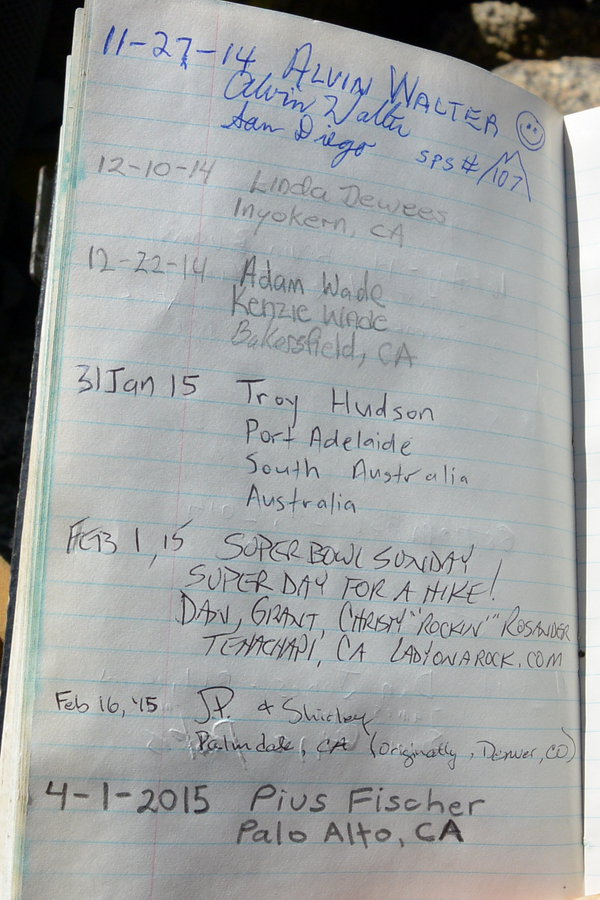 11-27-14 ALVIN WALTER
Alvin Walter
San Diego
SPS # 107
12-10-14 Linda Dewees
Inyokern, CA
12-22-14 Adam Wade
Kenzie Wade
Bakersfield, CA
31 Jan 15 Troy Hudson
Port Adelaide
South Australia
Australia
FEB 1, 15 SUPER BOWL SUNDAY
SUPER DAY FOR A HIKE!
DAN, GRANT, CHRISTY "ROCKIN'" ROSANDER
TEHACHAPI, CA LADYONAROCK.COM
Feb 16, '15 J.P. & Shirley
Palmdale, CA (Originally, Denver, CO)
4-1-2015 Pius Fischer
Palo Alto, CA